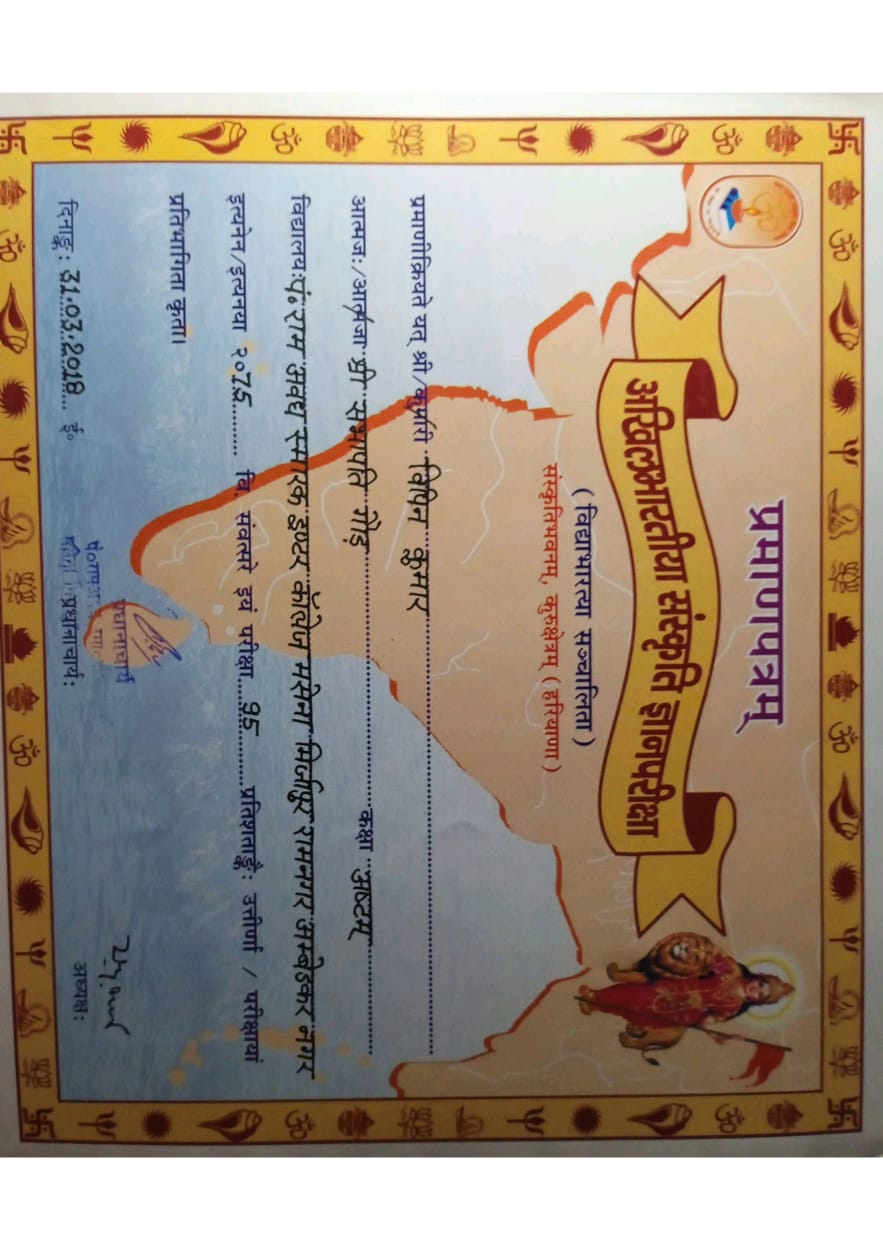 प्रमाणपत्रम्
अखिलभारतीया संस्कृति ज्ञानपरीक्षा
( विद्याभारत्या सञ्चालिता )
संस्कृतिभवनम्, कुरुक्षेत्रम् ( हरियाणा )
प्रमाणीक्रियते यत् श्री/कुमारी विपिन कुमार
आत्मजः/आत्मजा श्री सभापति गौड़ कक्षा अष्टम्
विद्यालयः पं. राम अवध स्मारक इण्टर कॉलेज भसेना मिर्जापुर रामनगर अम्बेडकर नगर
इत्यनेन/इत्यनया २०75 वि. संवत्सरे इयं परीक्षा 95 प्रतिशताङ्कैः उत्तीर्णा / परीक्षायां
प्रतिभागिता कृता।
प्रधानाचार्य
दिनाङ्कः 31.03.2018 ई० प्रधानाचार्यः अध्यक्षः